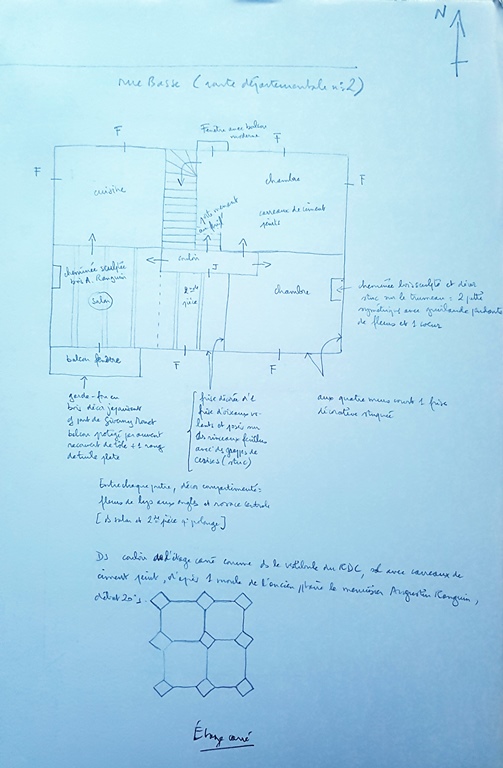 N
rue Basse (route départementale n°2)
F
Fenêtre avec balcon
moderne
F
F
F
cuisine
chambre
carreaux de ciment
peints
couloir
J
cheminée sculptée
bois A. Ranguin
salon
2nde
pièce
chambre
cheminée bois sculpté et décor
stuc sur le trumeau = 2 putti
symétriques avec guirlande
de fleurs et 1 coeur
balcon fenêtre
F
F
garde-fou en
bois décor japonisant
cf pont de Giverny Monet
balcon protégé par auvent
recouvert de tôle + 1 rang
de tuile plate
frise décorée d'1
frise d'oiseaux vo-
lants et posés sur
des rinceaux feuillus
avec des grappes de
cerises (stuc)
aux quatre murs court 1 frise
décorative stuquée
Entre chaque poutre, décor compartimenté =
fleurs de lys aux angles et rosace centrale
[ds salon et 2nde pièce qui prolonge]
Ds couloir de l'étage carré comme ds le vestibule du RDC, sol avec carreaux de
ciment peint, d'après 1 moule de l'ancien ppriétaire le menuisier Augustin Ranguin,
début 20e s.
Étage carré